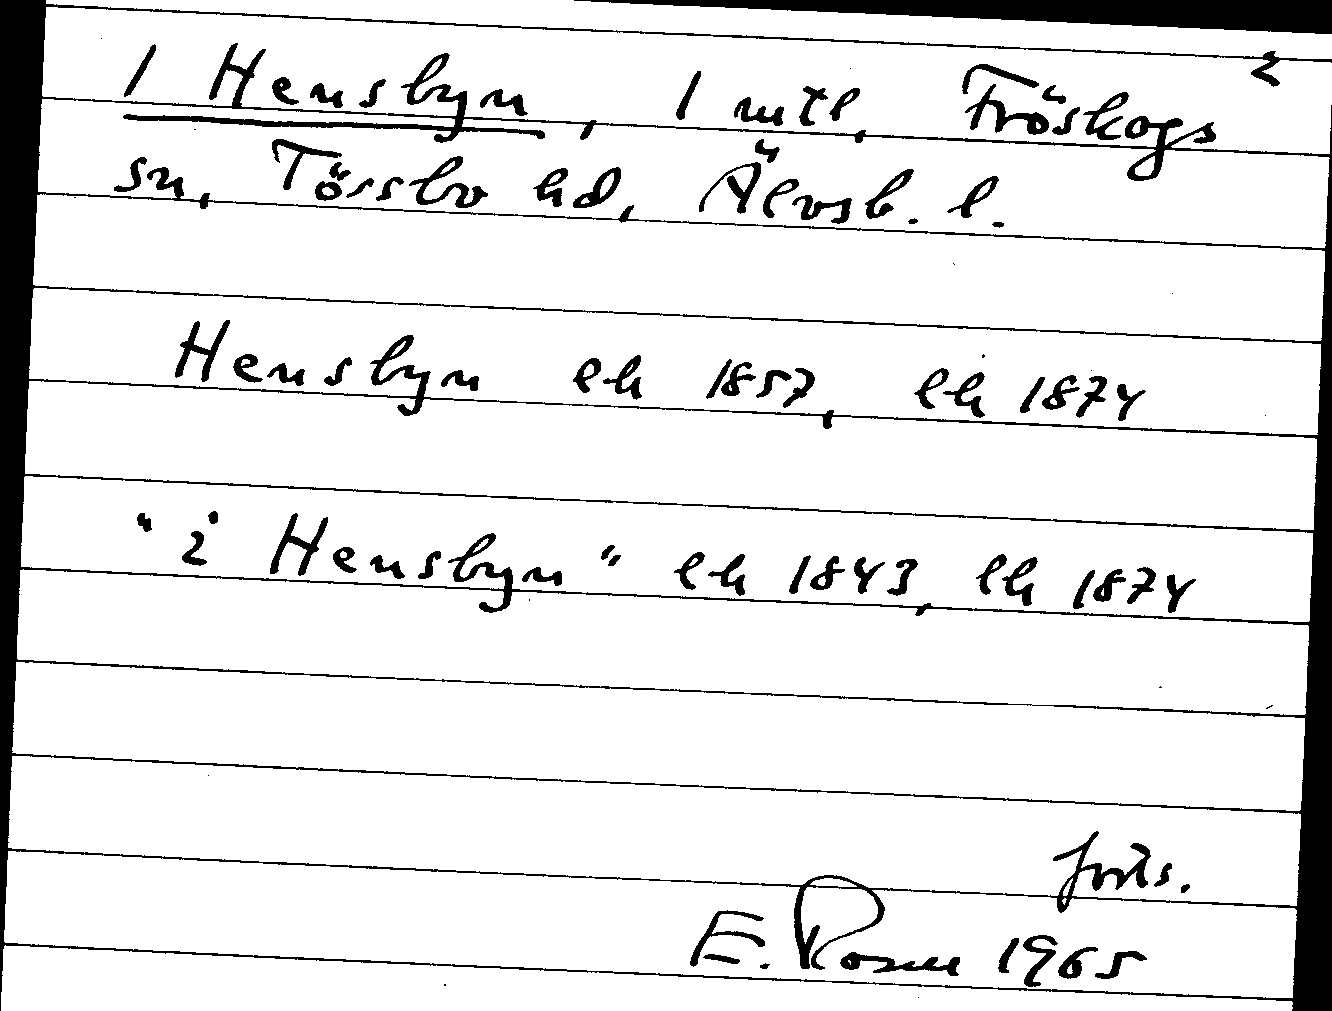 2
1 Hensbyn, 1 mtl, Fröskogs
sn, Tössbo hd, Älvsb. l.
Hensbyn lh 1857, lh 1874
"i Hensbyn" lh 1843, lh 1874
forts.
E. Rosne 1965